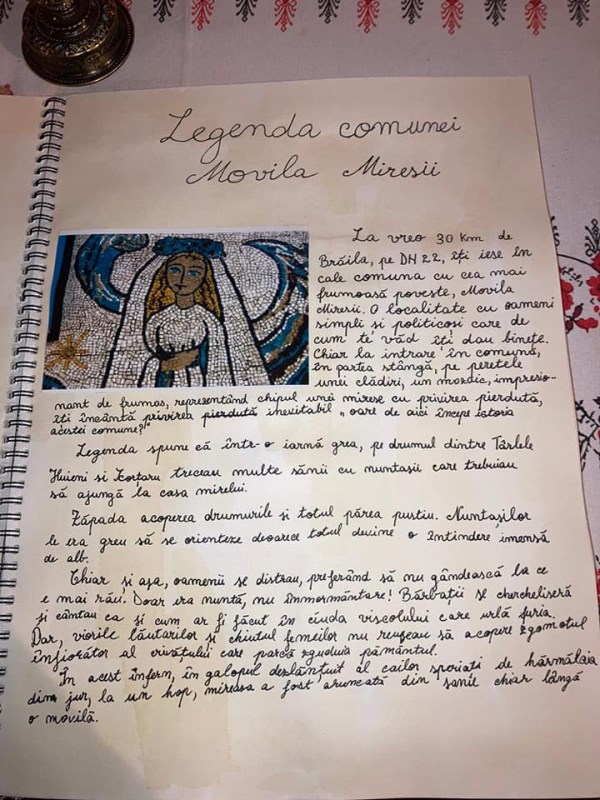 Legenda comunei
Movila Miresii
La vreo 30 km de
Brăila, pe DN 22, îți iese în
cale comuna cu cea mai
frumoasă poveste, Movila
Miresii. O localitate cu oameni
simpli și politicoși care de
cum te văd îți dau binețe.
Chiar la intrare în comună,
în partea stângă, pe peretele
unei clădiri, un mozaic, impresio-
nant de frumos, reprezentând chipul unei mirese cu privirea pierdută,
îți încântă privirea pierdută inevitabil „oare de aici începe istoria
acestei comune?"
Legenda spune că într-o iarnă grea, pe drumul dintre Târlele
Huieni si Esortaru treceau multe sănii cu nuntași care trebuiau
să ajungă la casa mirelui.
Zăpada acoperea drumurile și totul părea pustiu. Nuntașilor
le era greu să se orienteze deoarece totul devine o întindere imensă
de alb.
Chiar și așa, oamenii se distrau, preferând să nu gândească la ce
e mai rău. Doar era nuntă, nu înmormântare! Bărbații se chercheliseră
și cântau ca și cum ar fi făcut în ciuda viscolului care urlă furia.
Dar, viorile lăutarilor și chiutul femeilor nu reușeau să acopere zgomotul
înfiorător al crivățului care parcă zguduia pământul.
În acest infern, în galopul deslănțuit al cailor speriați de hărmălaia
din jur, la un hop, mireasa a fost aruncată din sanie chiar lângă
o movilă.